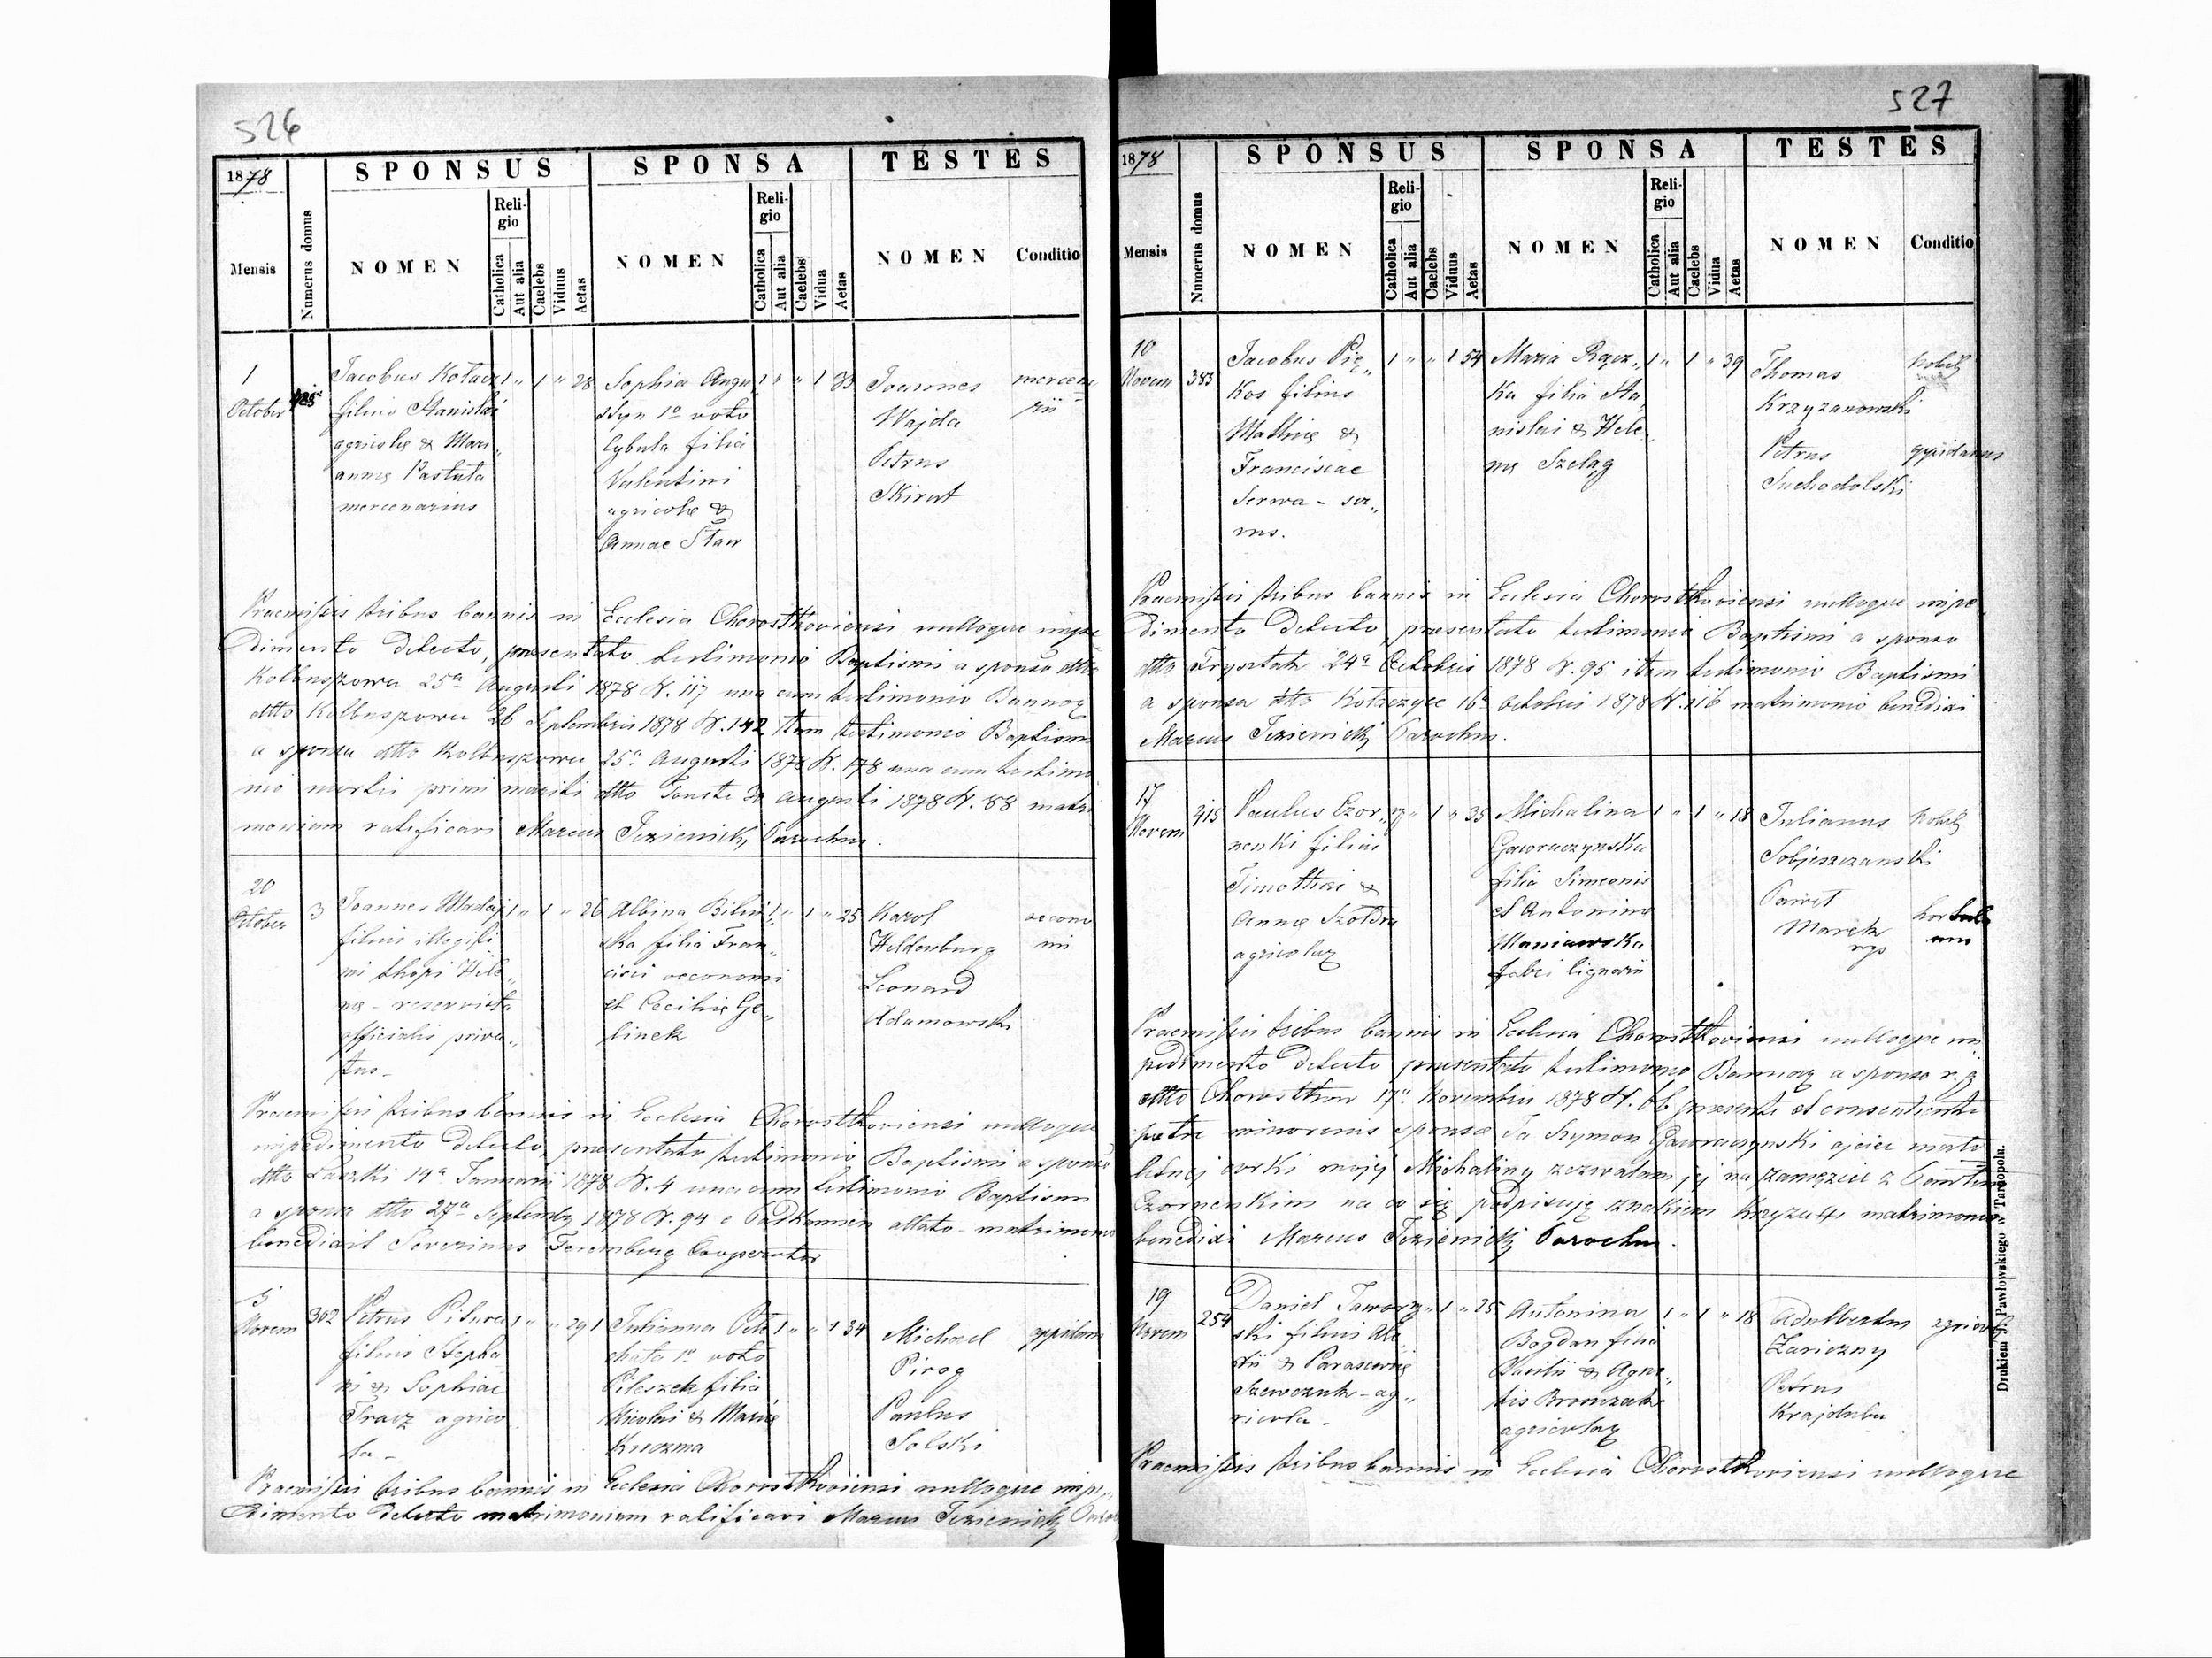 526
1878
SPONSUS
SPONSA
TESTES
Mensis
Numerus domus
NOMEN
Religio
Catholica
Aut alia
Caelebs
Viduus
Aetas
NOMEN
Religio
Catholica
Aut alia
Caelebs
Vidua
Aetas
NOMEN
Conditio
1
October
Jacobus Kołacz
filius Stanislai
agricolę & Mari„
annę Pastuła
mercenarius
1 „ 1 „ 28
Sophia Augu
styn 1º voto
Cybula filia
Valentini
agricolę &
Annae Staw
1 „ „ 1 33
Joannes
Wajda
Petrus
Skirut
mercena
rii
Praemissis tribus bannis in Ecclesia Chorostkoviensi nulloque impe
dimento detecto, praesentato testimonio Baptismi a sponso dtto
Kolbuszowa 25ª Augusti 1878 N. 117 una cum testimonio Bannor
dtto Kolbuszowa 26 Septembris 1878 N. 142 item testimonio Baptismi
a sponsa dtto Kolbuszowa 25ª Augusti 1878 N. 178 una cum testimo
nio mortis primi mariti dtto Touste Augusti 1878 N. 88 matri
monium ratificavi Marcus Parochus.
20
October
3
Joannes Madej
filius illegiti
mi thori Hele„
nę - reservista
officialis priva„
tus -
1 „ 1 „ 26
Albina Biliń
ska filia Fran„
cisci oeconomi
et Cecilię Ge„
linek
1 „ 1 „ 25
Karol
Heldenburg
Leonard
Adamowski
oecono
mi
Praemissis tribus bannis in Ecclesia Chorostkoviensi nulloque
impedimento detecto praesentato testimonio Baptismi a sponso
dtto Laszki 14ª Januarii 1878 N. 4 una cum testimonio Baptismi
a sponsa dtto 27ª Septembr 1878 N. 94 e Podkamien allato - matrimonio
benedixit Severinus Cooperator
5
Novem
302
Petrus
filius Stepha
ni & Sophiae
Tracz agrico
la -
1 „ „ 29 1
Julianna
1º voto
Pileszek filia
Nicolai & Marię
Kuczma
1 „ „ 1 34
Michael
Pirog
Paulus
Solski
oppidani
Praemissis tribus bannis in Ecclesia Chorostkoviensi nulloque impe„
dimento detecto matrimonium ratificavi Marcus
527
1878
SPONSUS
SPONSA
TESTES
Mensis
Numerus domus
NOMEN
Religio
Catholica
Aut alia
Caelebs
Viduus
Aetas
NOMEN
Religio
Catholica
Aut alia
Caelebs
Vidua
Aetas
NOMEN
Conditio
10
Novem
383
Jacobus Pię„
kos filius
Mathię &
Franciscae
Serwa - ser„
vus.
1 „ „ 1 54
Maria Rącz„
ka filia Sta„
nislai & Hele„
nę Szeląg
1 „ 1 „ 39
Thomas
Krzyzanowski
Petrus
Suchodolski
Nobil
oppidanus
Praemissis tribus bannis in Ecclesia Chorostkoviensi nulloque impe
dimento detecto, praesentato testimonio Baptismi a sponso
dtto Frysztak 24ª Octobris 1878 N. 95 item testimonio Baptismi
a sponsa dtto Kołaczyce 16ª Octobris 1878 N. 116 matrimonio benedixi
Marcus Parochus.
17
Novem
415
Paulus Czor„
nenki filius
Timothei &
Annę Szołdra
agricolar
„ 1 „ 35
Michalina
Gaworaczynska
filia Simeonis
et Antonina
Maniawska
fabri lignarii
1 „ 1 „ 18
Julianus
Sobjeszczanski
Paweł
Marek
Nobil
Praemissis tribus bannis in Ecclesia Chorostkoviensi nulloque im
pedimento detecto praesentato testimonio Bannor a sponso r. g
dtto Chorostkow 17ª Novembris 1878 N. 66 praesente et consentiente
patre minorenis sponsae Ja Szymon Gaworaczynski ojciec mało
letnej corki mojej Michaliny zezwalam jej na zamęzcie z Pawłem
Czornenkim na co się podpisuję znakiem Krzyza + matrimonio
benedixi Marcus Parochus.
19
Novem
254
Daniel Jawor
ski filius Ale
xii & Parascevię
Szewczuk - ag„
ricola -
„ 1 „ 25
Antonina
Bogdan filia
Basilii & Agne„
tis
agricolar
1 „ 1 „ 18
Adalbertus
Zariczny
Petrus
Krajduba
agricol
Praemissis tribus bannis in Ecclesia Chorostkoviensi nulloque
Drukiem J. Pawłowskiego w Tarnopolu.